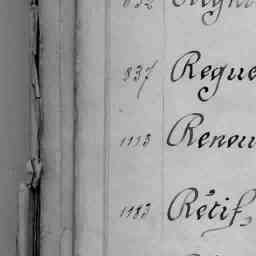 837 Regue
1113 Renou
1183 Rétif,